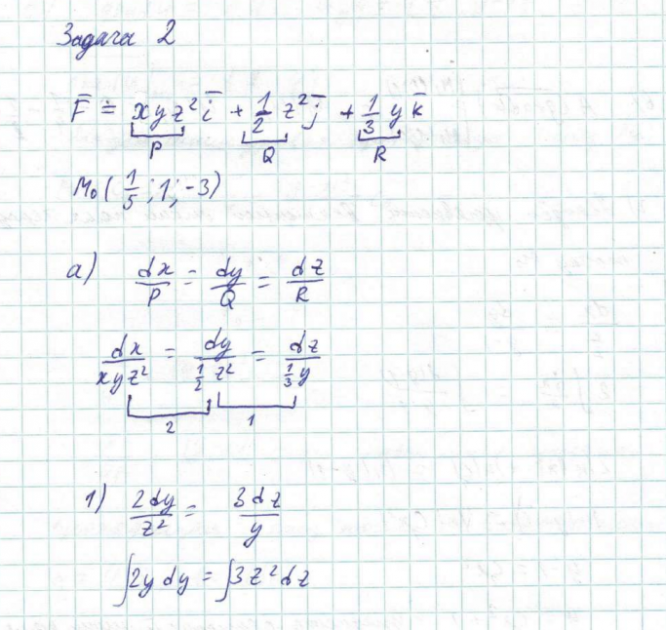 Задача 2
F̄ = xyz² ī + 1/2 z² j̄ + 1/3 y k̄
P Q R
M₀ (1/5; 1; -3)
а) dx/P = dy/Q = dz/R
dx/xyz² = dy/(1/2 z²) = dz/(1/3 y)
2 1
1) 2dy/z² = 3dz/y
∫2y dy = ∫3z² dz